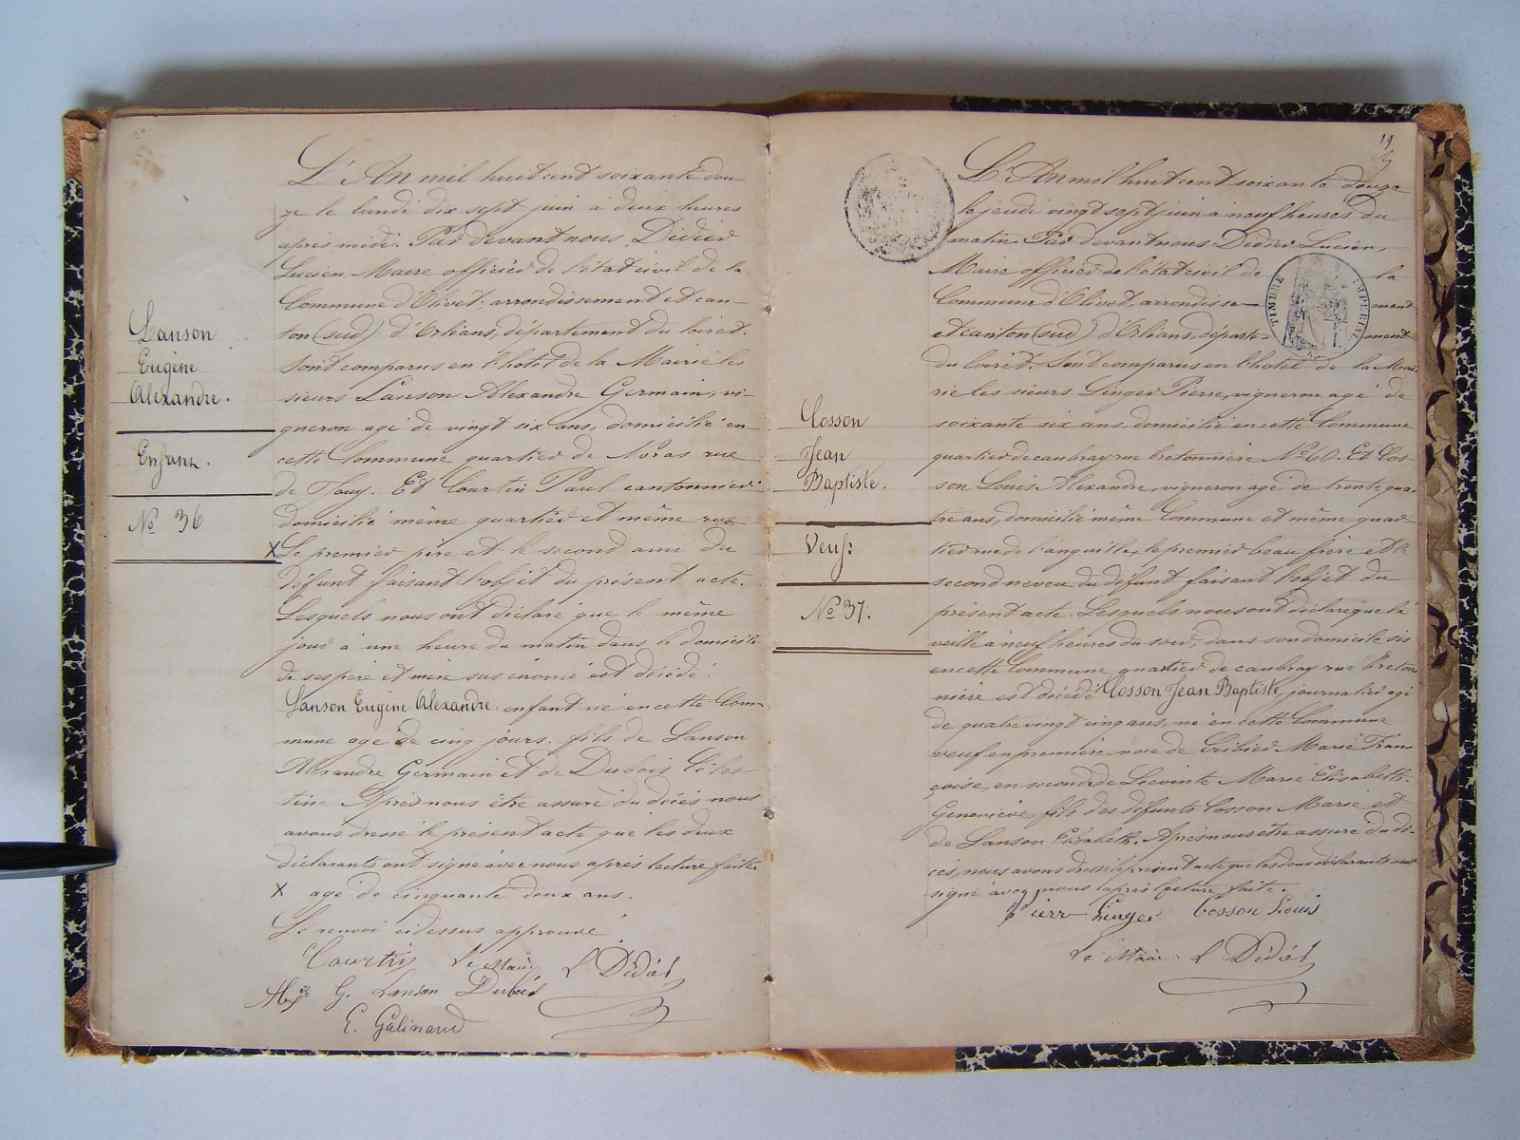 Lanson
Eugène
Alexandre.
Enfant.
No 36
L'An mil huit cent soixante dou-
ze le lundi dix sept juin à deux heures
après midi. Par devant nous Didier
Lucien Maire officier de l'état civil de la
Commune d'Olivet arrondissement et can-
ton (sud) d'Orléans, département du loiret.
Sont comparus en l'hotel de la Mairie les
sieurs Lanson Alexandre Germain, vi-
gneron agé de vingt six ans, domicilié en
cette Commune quartier de Noras rue
de Flouy. Et Courtin Paul cantonnier
domicilié même quartier et même rue
X Le premier père et le second ami du
défunt faisant l'objet du présent acte.
Lesquels nous ont déclaré que le même
jour à une heure du matin dans le domicile
de ses père et mère sus énoncé est décédé
Lanson Eugène Alexandre enfant né en cette Com-
mune agé de cinq jours. fils de Lanson
Alexandre Germain et de Dubois Céles-
tine Après nous être assuré du décès nous
avons dressé le présent acte que les deux
déclarants ont signé avec nous après lecture faite.
X agé de cinquante deux ans.
Le renvoi ci dessus approuvé
Courtin Le Maire L Didier
G. Lanson Dubois
E. Galinand
19
L'An mil huit cent soixante douze
le jeudi vingt sept juin à neuf heures du
matin. Par devant nous Didier Lucien,
Maire officier de l'état civil de la
Commune d'Olivet arrondisse- ment
et canton (sud) d'Orléans, départe- ment
TIMBRE IMPERIAL
du loiret. Sont comparus en l'hotel de la Mai-
rie les sieurs Linger Pierre, vigneron agé de
soixante six ans, domicilié en cette Commune
quartier de caubray rue bretonnière No 40. Et Cos-
son Louis Alexandre, vigneron agé de trente qua-
tre ans, domicilié même Commune et même quar-
tier rue de l'anguille, le premier beau frère et le
second neveu du défunt faisant l'objet du
présent acte. Lesquels nous ont déclaré que la
veille à neuf heures du soir, dans son domicile sis
en cette Commune quartier de caubray rue breton-
nière est décédé Cosson Jean Baptiste, journalier agé
de quatre vingt cinq ans, né en cette Commune
veuf en première noce de Marie Fran-
çoise, en seconde de Lecointe Marie Elisabeth
Geneviève, fils des défunts Cosson Marie et
de Lanson Elisabeth. Après nous être assuré du dé-
cès, nous avons dressé le présent acte que les deux déclarants ont
signé avec nous après lecture faite.
Cosson
Jean
Baptiste.
Veuf:
No 37.
Pierr Linger Cosson Louis
Le Maire L Didier